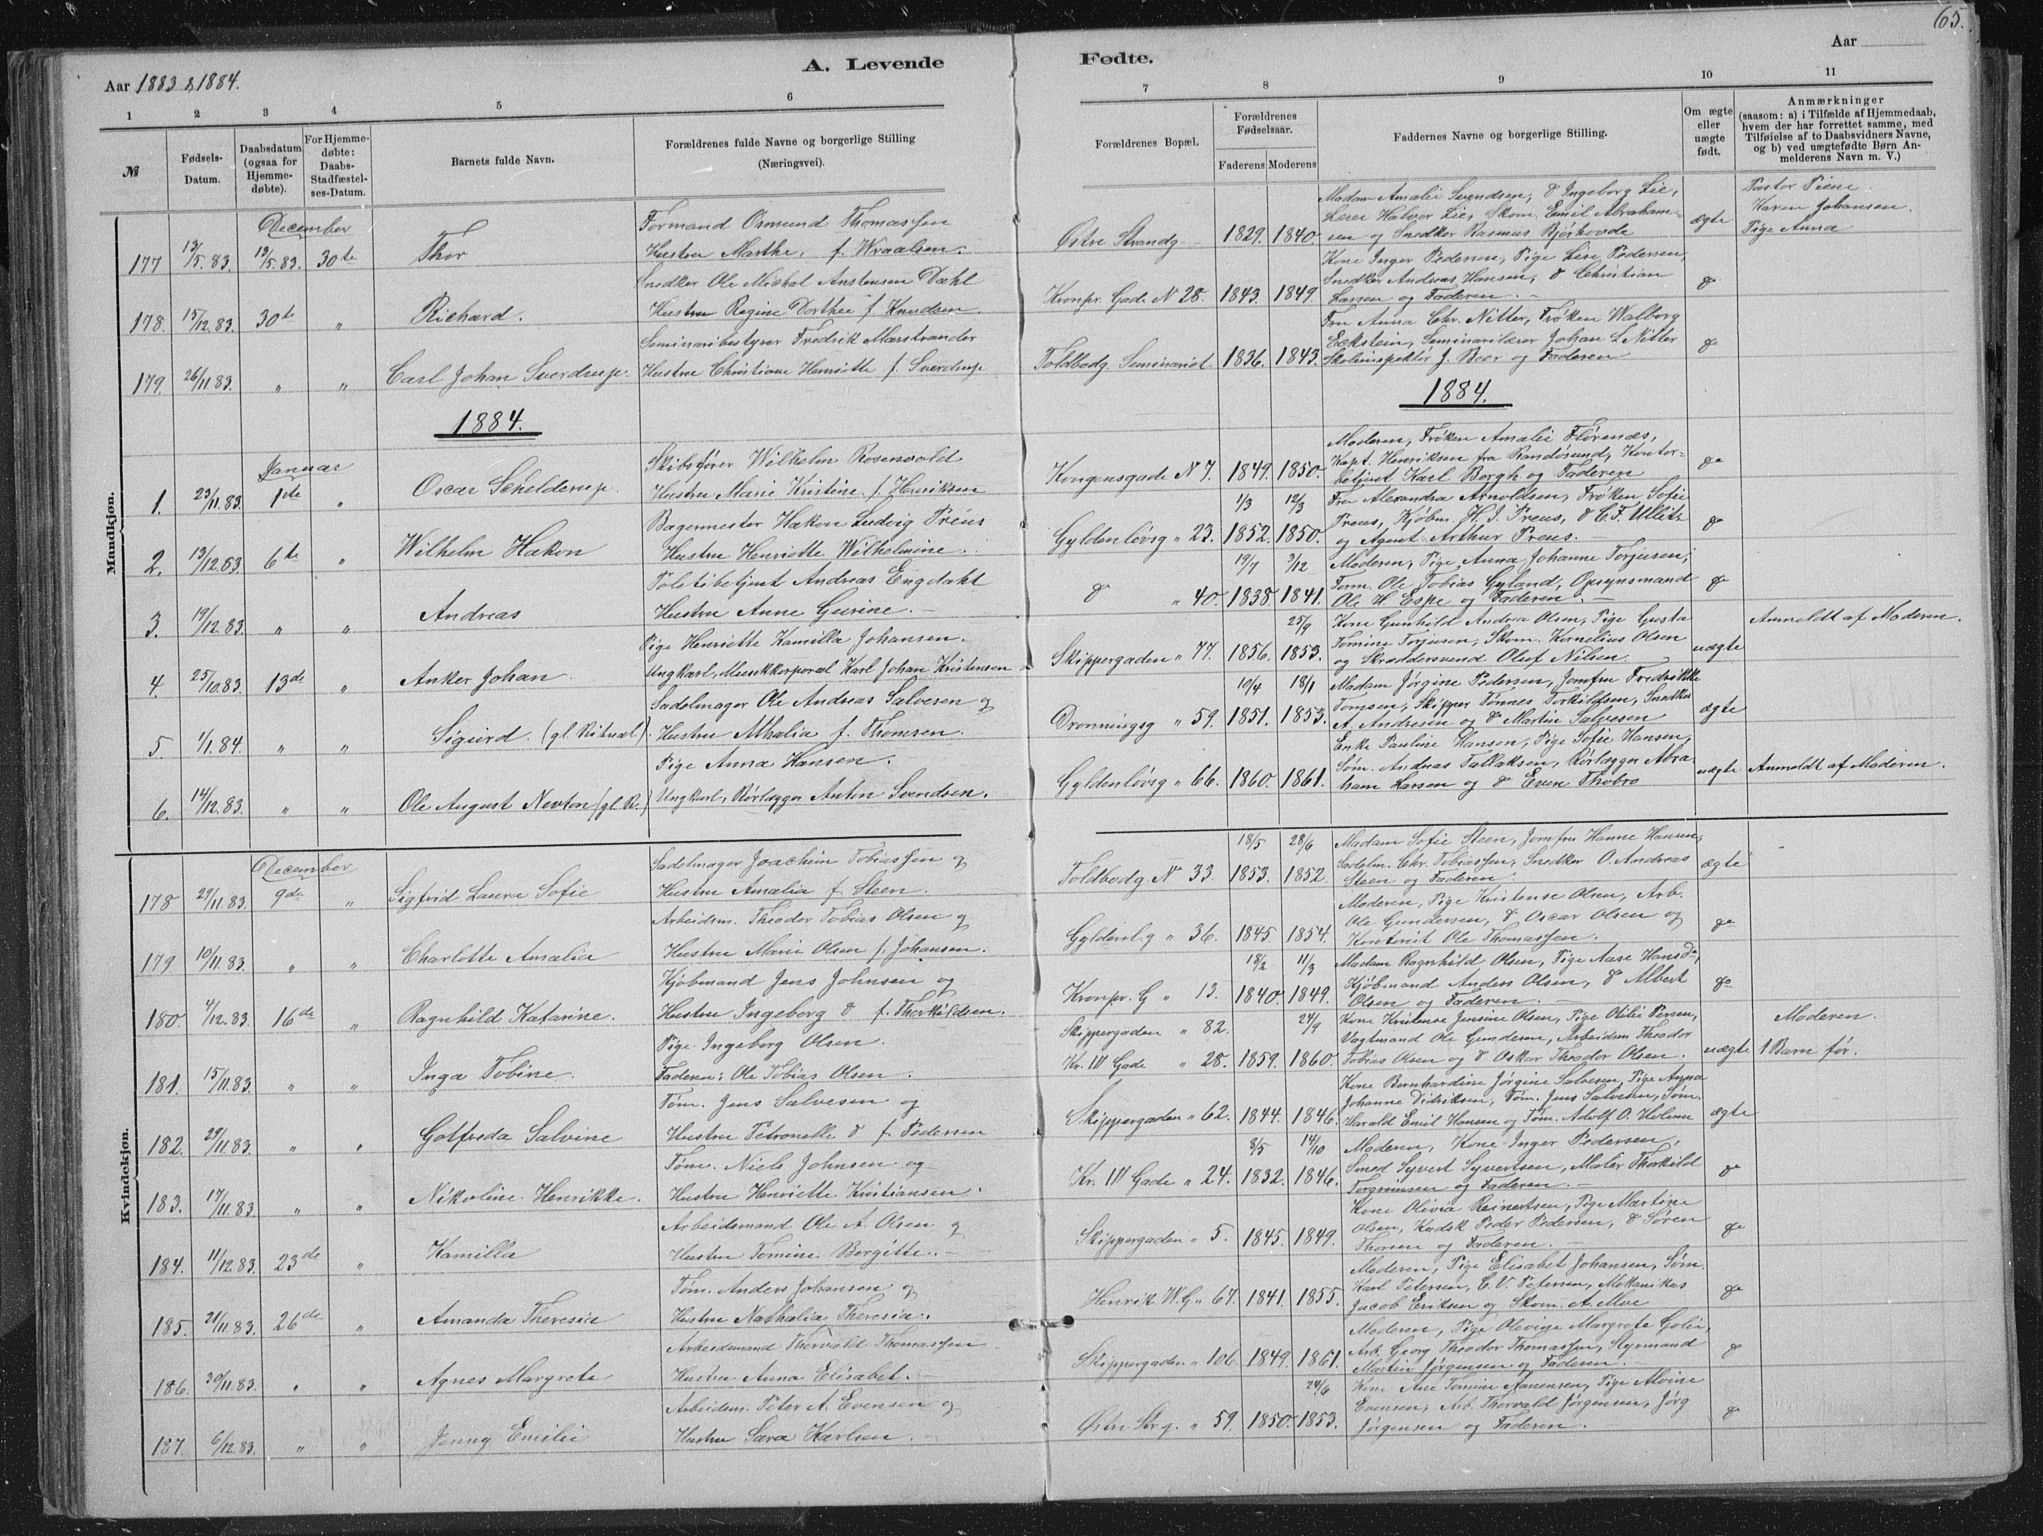 65.
Aar 1883 & 1884.
A. Levende
Fødte.
Aar
1 2 3 4 5 6 7 8 9 10 11
№
Fødsels-Datum.
Daabsdatum (ogsaa for Hjemmedøbte).
For Hjemmedøbte: Daabs-Stadfæstelses-Datum.
Barnets fulde Navn.
Forældrenes fulde Navne og borgerlige Stilling (Næringsvei).
Forældrenes Bopæl.
Forældrenes Fødselsaar.
Faderens Moderens
Faddernes Navne og borgerlige Stilling.
Om ægte eller uægte født.
Anmærkninger (saasom: a) i Tilfælde af Hjemmedaab, hvem der har forrettet samme, med Tilføielse af to Daabsvidners Navne, og b) ved uægtefødte Børn Anmelderens Navn m. V.)
Mandkjøn.
December
Formand Osmund Thomassen
Madam Amalie Svendsen, & Ingeborg Lie,
Pastor Piene
Lærer Halvor Lie, Skom. Emil Abraham-
Karen Johansen.
177 13/5.83. 13/5.83. 30te Thor Hustru Marthe, f. Wraalsen. Østre Strandg 1829. 1840. sen og Snedker Rasmus Bjørkvode ægte Pige Anna
Snedker Ole Michal Anstensen Dahl
Kone Inger Pedersen, Pige Lise Pedersen,
Snedker Andreas Hansen, & Christian
178. 15/12.83. 30te " Richard. Hustru Regine Dorthea f. Knudsen. Kronpr. Gade N 28. 1843. 1849. Larsen og Faderen. do
Seminariebestyrer Fredrik Marstrander
Fru Anna Chr. Nitter, Frøken Walborg
Eckstein, Seminarilærer Johan L. Nitter
179. 26/11.83. " " Carl Johan Sverdrup. Hustru Christiane Henriette f. Sverdrup Toldbodg. Seminariet. 1836. 1843. Skoleinspektør J. Beer og Faderen do
1884.
1884.
Januar
Skibsfører Wilhelm Rosenvold
Moderen, Frøken Amalie Flørenæs,
Kapt. Henriksen fra Randøsund, Kontor-
1. 23/11.83. 1ste " Oscar Schelderup. Hustru Marie Kristine f. Henriksen Kongensgade N 7. 1849. 1850. betjent Karl Bergh og Faderen do
1/3 12/3
Bagermester Hakon Ludvig Preus
Fru Alexandra Arnoldsen, Frøken Sofie
Preus, Kjøbm. H. J. Preus, & C. F. Ullitz
2. 13/12.83. 6te " Wilhelm Hakon Hustru Henriette Wilhelmine. Gyldenløvsg " 23. 1852. 1850. og Agent Arthur Preus. do
19/7 3/12
Politibetjent Andreas Engdahl
Moderen, Pige Anna Johanne Torjusen,
Tøm. Ole Tobias Gyland, Opsynsmand
3. 19/12.83. " " Andreas Hustru Anne Gurine. do " 40. 1838. 1841. Ole H. Espe og Faderen. do
25/9
Pige Henriette Kamilla Johansen.
Kone Gunhild Andrea Olsen, Pige Gusta
Tomine Torjusen, Skom. Kornelius Olsen
Anmeldt af Moderen.
4. 25/10.83. 13de " Anker Johan. Ungkarl, Musikkorporal Karl Johan Kristensen Skippergaden " 77. 1856. 1853. og Skræddersvend Oluf Nilsen. uægte
19/4 18/1
Sadelmager Ole Andreas Salvesen og
Madam Jørgine Pedersen, Jomfru Fredrikke
Tomsen, Skipper Tønnes Torkildsen, Snedker
5. 1/1.84. " " Sigurd. (gl Ritual). Hustru Athalia f. Thomsen. Dronningsg " 59. 1851. 1853. A. Andresen og & Martin Salvesen ægte
Pige Anna Hansen.
Enke Pauline Hansen, Pige Sofie Hansen,
Søm. Andreas Tallaksen, Rørlægger Abra
6. 14/12.83. " " Ole August Newton (gl. R.) Ungkarl, Rørlægger Anton Svendsen. Gyldenløvsg " 66. 1860. 1861. ham Larsen og & Even Thobro uægte Anmeldt af Moderen.
Kvindekjøn.
December
18/5 28/6
Sadelmager Joachim Tobiassen og
Madam Sofie Steen, Jomfru Hanne Hansen,
Sadelm. Chr. Tobiassen, Snedker O. Andreas
178 29/11.83. 9de " Sigfrid Laura Sofie Hustru Amalia f. Steen. Toldbodg. N 33. 1853. 1852. Steen og Faderen. ægte
Arbeidsm. Theodor Tobias Olsen og
Moderen, Pige Kristense Olsen, Arb.
Ole Gundersen, & Oscar Olsen og
179 10/11.83. " " Charlotte Amalia Hustru Marie Olsen f. Johansen. Gyldenl.g " 36. 1845. 1854. Kontorist Ole Thomassen. do
18/2 11/3
Kjøbmand Jens Johnsen og
Madam Ragnhild Olsen, Pige Aase Hansdr,
Kjøbmand Anders Olsen, & Albert
180 4/12.83. 16de " Ragnhild Katarine. Hustru Ingeborg & f. Thorkildsen. Kronpr. G " 13. 1840. 1849. Olsen og Faderen. do
Pige Ingeborg Olsen.
Skippergaden " 82. 24/9 Kone Kristense Jensine Olsen, Pige Otilie Iversen,
Moderen.
Vogtmand Ole Gundersen, Arbeidsm Theodor
181. 15/11.83. " " Inga Tobine. Faderen: Ole Tobias Olsen. Kr. IV Gade " 28. 1859. 1860. Tobias Olsen og & Oskar Theodor Olsen. uægte 1 Barn før.
Tøm. Jens Salvesen og
Kone Bernhardine Jørgine Salvesen, Pige Anna
Johanne Didriksen, Tøm. Jens Salvesen, Søm.
182. 29/11.83. " " Gotfreda Salvine Hustru Petronelle & f. Pedersen Skippergaden " 62. 1844. 1846. Harald Emil Hansen og Tøm. Adolf O. Helene ægte
8/5 14/10
Tøm. Niels Johnsen og
Moderen, Kone Inger Pedersen,
Smed Syvert Syvertsen, Maler Thorkild
183. 17/11.83. " " Nikoline Henrikke. Hustru Henriette Kristiansen. Kr. IV Gade " 24. 1832. 1846. Torgrimsen og Faderen. do
Arbeidsmand Ole A. Olsen og
Kone Olivia Reinertsen, Pige Martine
Olsen, Kudsk Peder Pedersen, & Søren
184. 11/12.83. 23de " Kamilla Hustru Tomine Bergitte. Skippergaden " 5. 1845. 1849. Thorsen og Faderen. do
Tøm. Anders Johansen og
Moderen, Pige Elisabet Johansen, Søm.
Karl Petersen, C. V. Petersen, Mekanikus
185. 21/11.83. 26de " Amanda Theresia Hustru Nathalia Theresia. Henrik W. G " 67. 1841. 1855. Jacob Eriksen og Skom. A. Moe do
Arbeidsmand Thorvald Thomassen
Moderen, Pige Olevine Margrete Golie,
Arb. Georg Theodor Thomassen, Styrmand
186. 30/11.83. " " Agnes Margrete Hustru Anna Elisabet. Skippergaden " 106. 1849. 1861. Martin Jørgensen og Faderen. do
24/6
Arbeidsm. Peter A. Evensen og
Kone Ane Tomine Aanensen, Pige Alvine
Evensen, Arb. Thorvald Jørgensen, Jørg
187. 6/12.83. " " Jenny Emilie Hustru Sara Karlsen. Østre Str.g. " 59. 1850. 1853. Jørgensen og Faderen. do